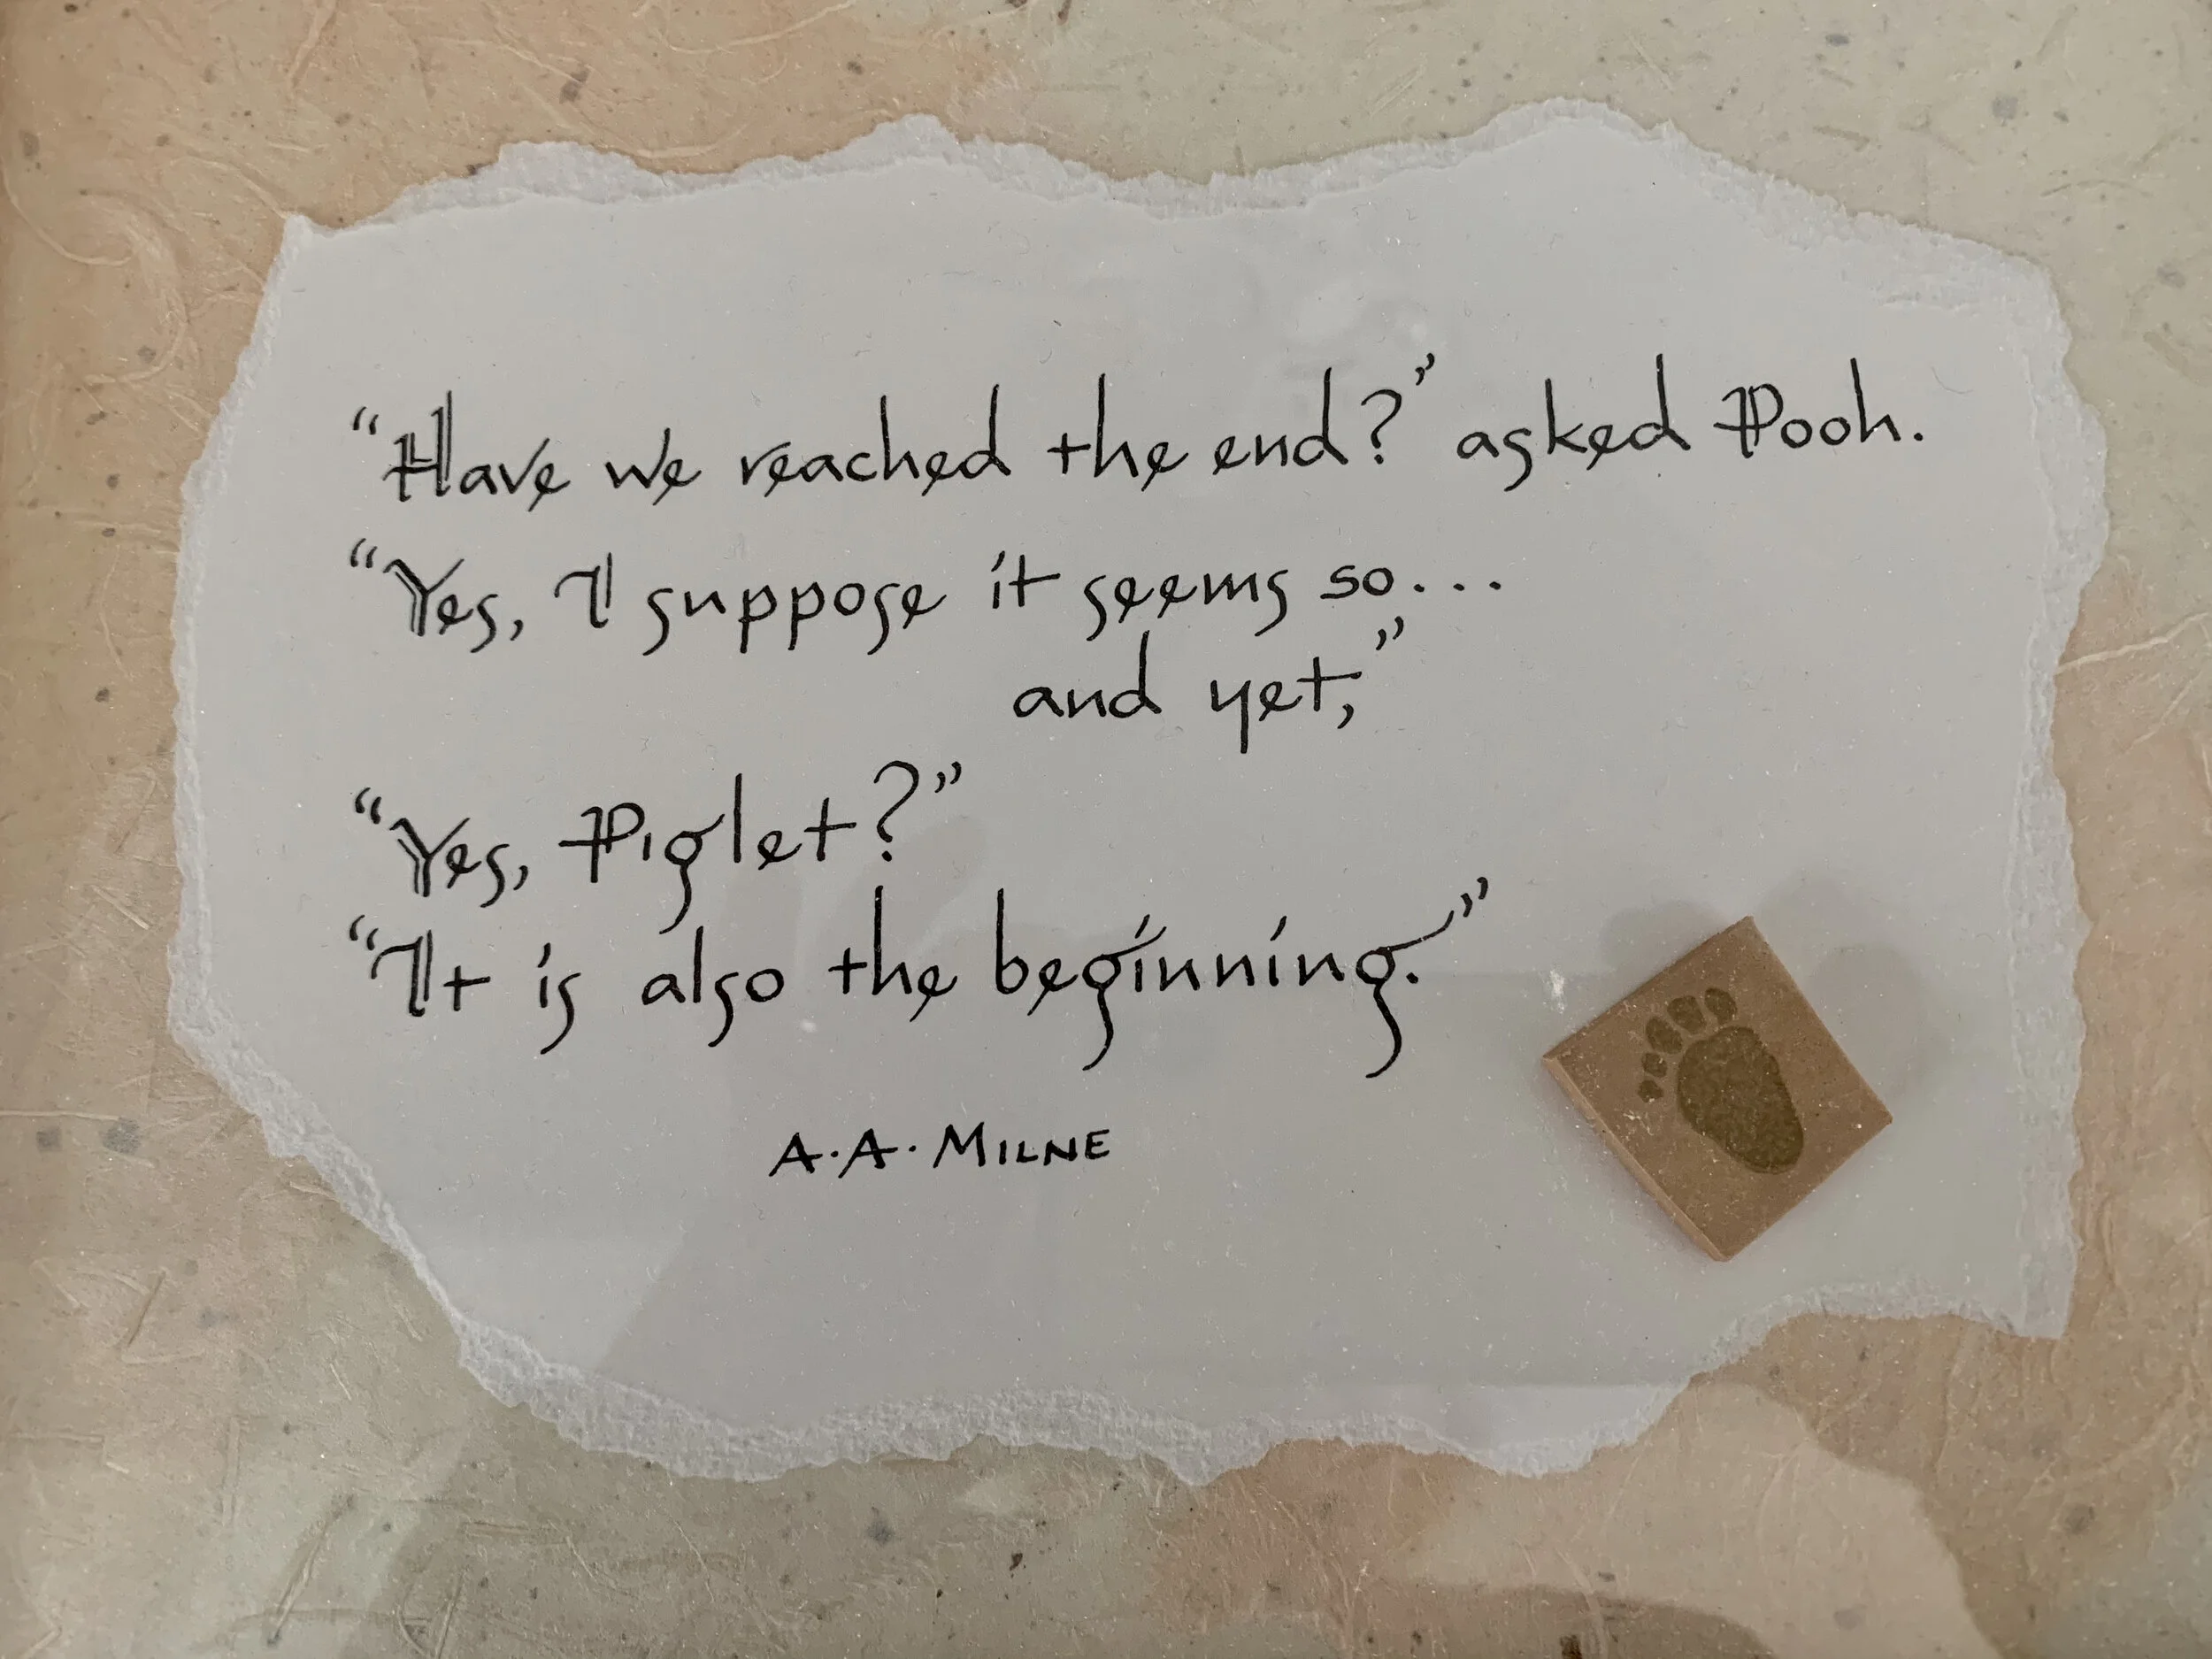 “Have we reached the end?” asked Pooh.
“Yes, I suppose it seems so...
and yet,”
“Yes, Piglet?”
“It is also the beginning.”
A.A. MILNE